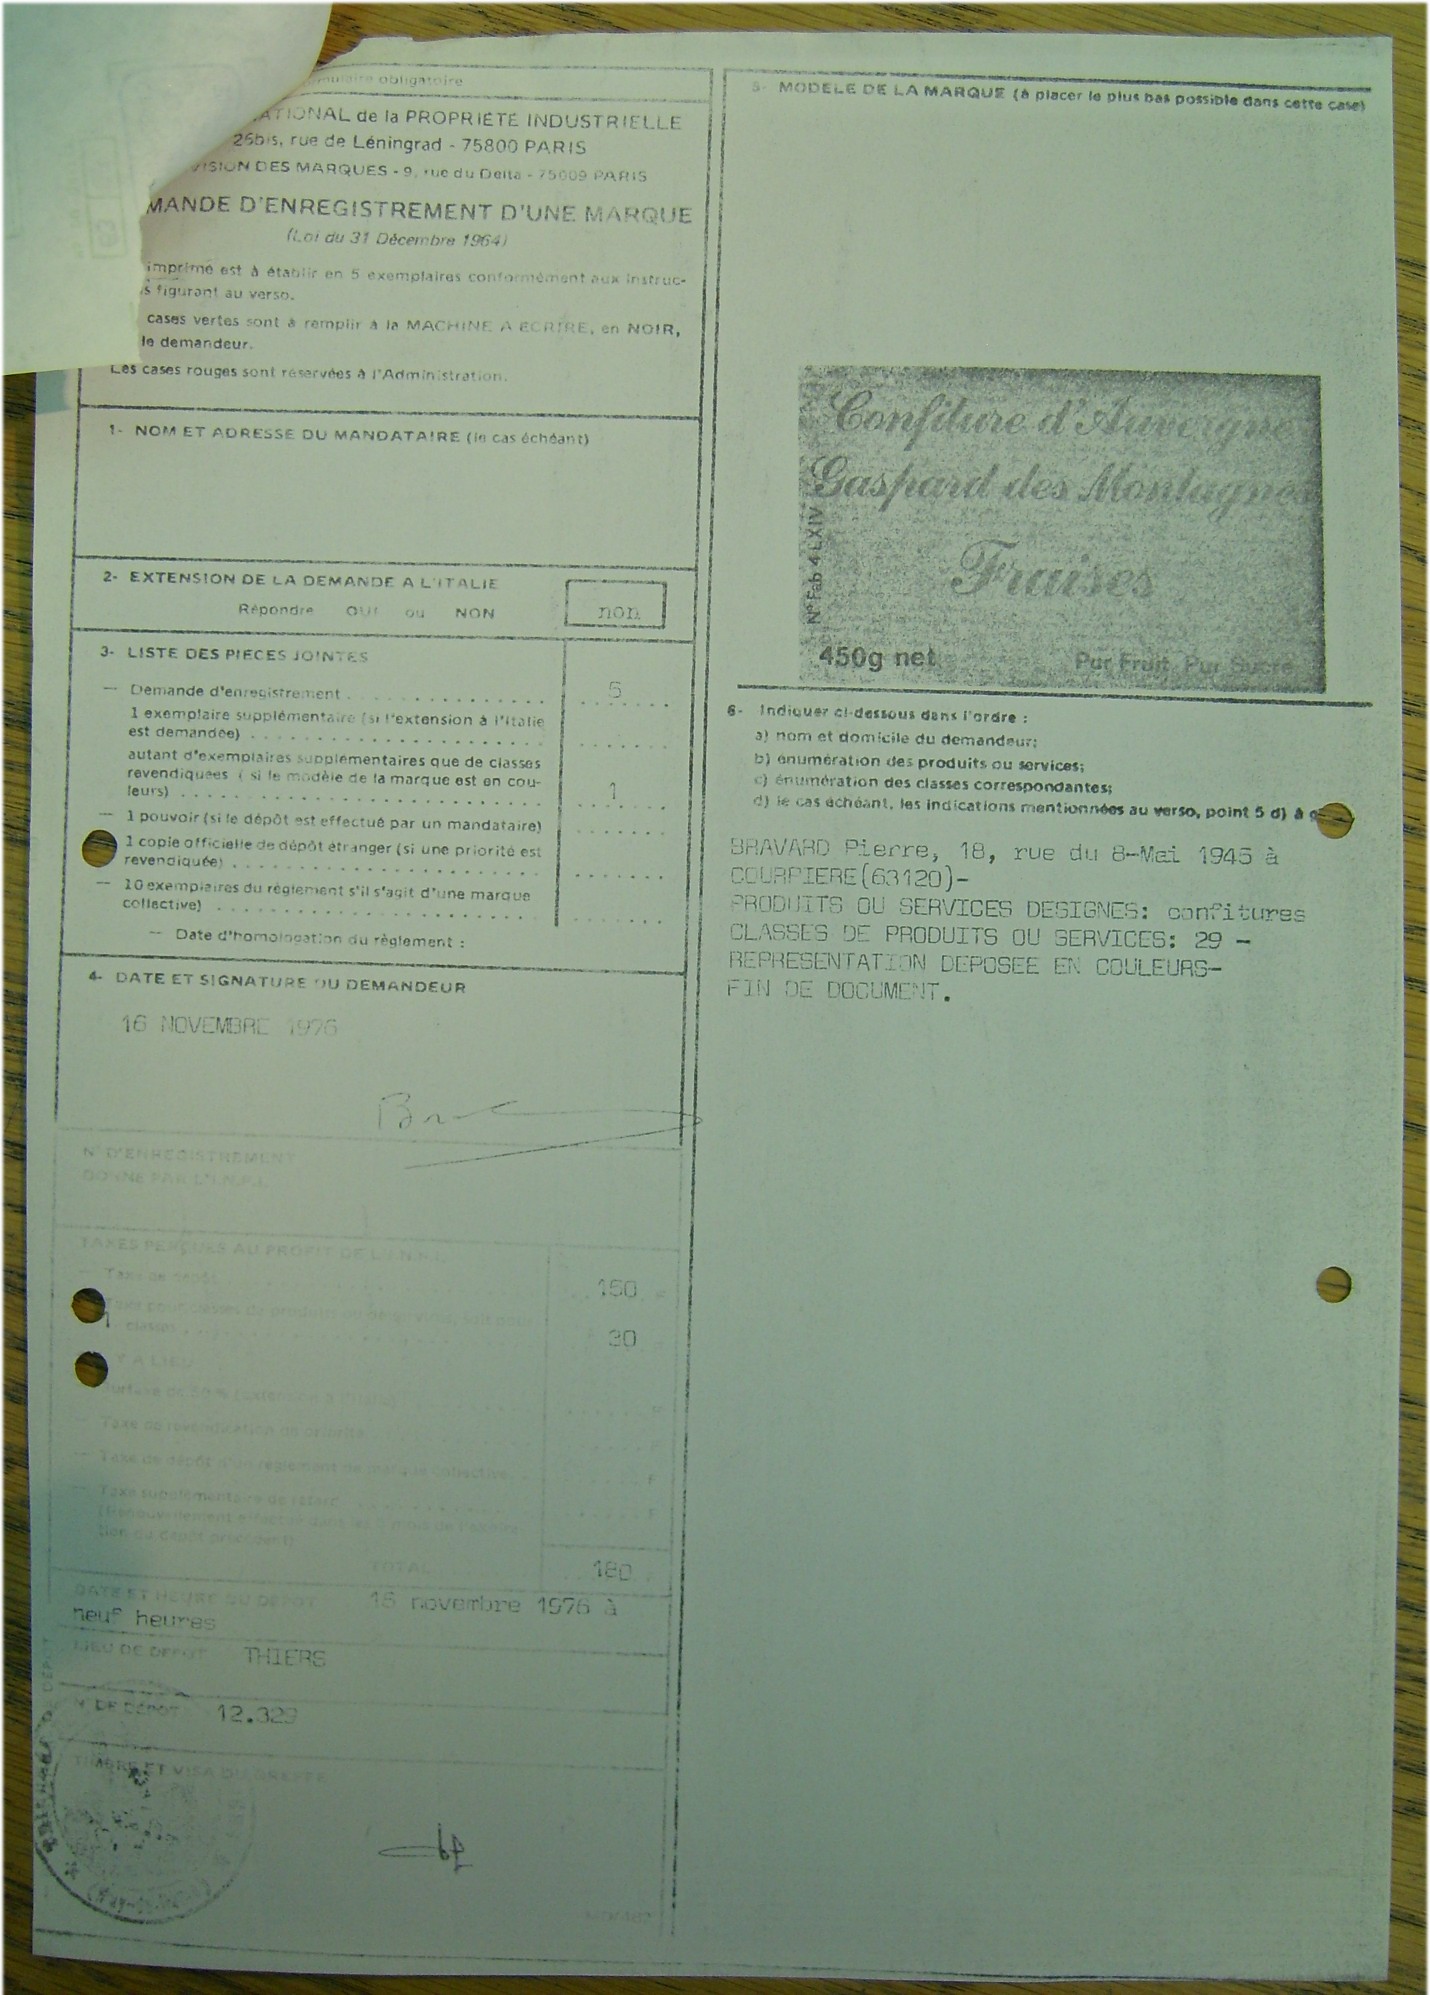 mulaire obligatoire
ATIONAL de la PROPRIETE INDUSTRIELLE
26bis, rue de Léningrad - 75800 PARIS
VISION DES MARQUES - 9, rue du Delta - 75009 PARIS
MANDE D'ENREGISTREMENT D'UNE MARQUE
(Loi du 31 Décembre 1964)
imprimé est à établir en 5 exemplaires conformément aux instruc-
s figurant au verso.
cases vertes sont à remplir à la MACHINE A ECRIRE, en NOIR,
le demandeur.
Les cases rouges sont réservées à l'Administration.
1- NOM ET ADRESSE DU MANDATAIRE (le cas échéant)
2- EXTENSION DE LA DEMANDE A L'ITALIE
Répondre OUI ou NON non
3- LISTE DES PIECES JOINTES
— Demande d'enregistrement . . . . . . . . . . . 5
1 exemplaire supplémentaire (si l'extension à l'Italie
est demandée) . . . . . . . . . . . . . . . . .
autant d'exemplaires supplémentaires que de classes
revendiquées ( si le modèle de la marque est en cou-
leurs) . . . . . . . . . . . . . . . . . . . . 1
— 1 pouvoir (si le dépôt est effectué par un mandataire)
1 copie officielle de dépôt étranger (si une priorité est
revendiquée) . . . . . . . . . . . . . . . . . .
— 10 exemplaires du règlement s'il s'agit d'une marque
collective) . . . . . . . . . . . . . . . . . . .
— Date d'homologation du règlement :
4- DATE ET SIGNATURE DU DEMANDEUR
16 NOVEMBRE 1976
N° D'ENREGISTREMENT
DONNE PAR L'I.N.P.I.
TAXES PERÇUES AU PROFIT DE L'I.N.P.I.
— Taxe de dépôt 150 F
Taxe pour classes de produits ou de services, soit pour
1 classes 30
Y A LIEU
Surtaxe de 50 % (extension à l'Italie) F
— Taxe de revendication de priorité F
— Taxe de dépôt d'un règlement de marque collective F
— Taxe supplémentaire de retard F
tion du dépôt précédent)
TOTAL 180
DATE ET HEURE DU DEPOT 16 novembre 1976 à
neuf heures
LIEU DE DEPOT THIERS
N° DE DEPOT 12.329
TIMBRE ET VISA DU GREFFE
5- MODELE DE LA MARQUE (à placer le plus bas possible dans cette case)
Confiture d'Auvergne
Gaspard des Montagnes
Fraises
N° Fab 4 LXIV
450g net Pur Fruit, Pur Sucre
6- Indiquer ci-dessous dans l'ordre :
a) nom et domicile du demandeur;
b) énumération des produits ou services;
c) énumération des classes correspondantes;
d) le cas échéant, les indications mentionnées au verso, point 5 d) à g
BRAVARD Pierre, 18, rue du 8-Mai 1945 à
COURPIERE(63120)-
PRODUITS OU SERVICES DESIGNES: confitures
CLASSES DE PRODUITS OU SERVICES: 29 -
REPRESENTATION DEPOSEE EN COULEURS-
FIN DE DOCUMENT.